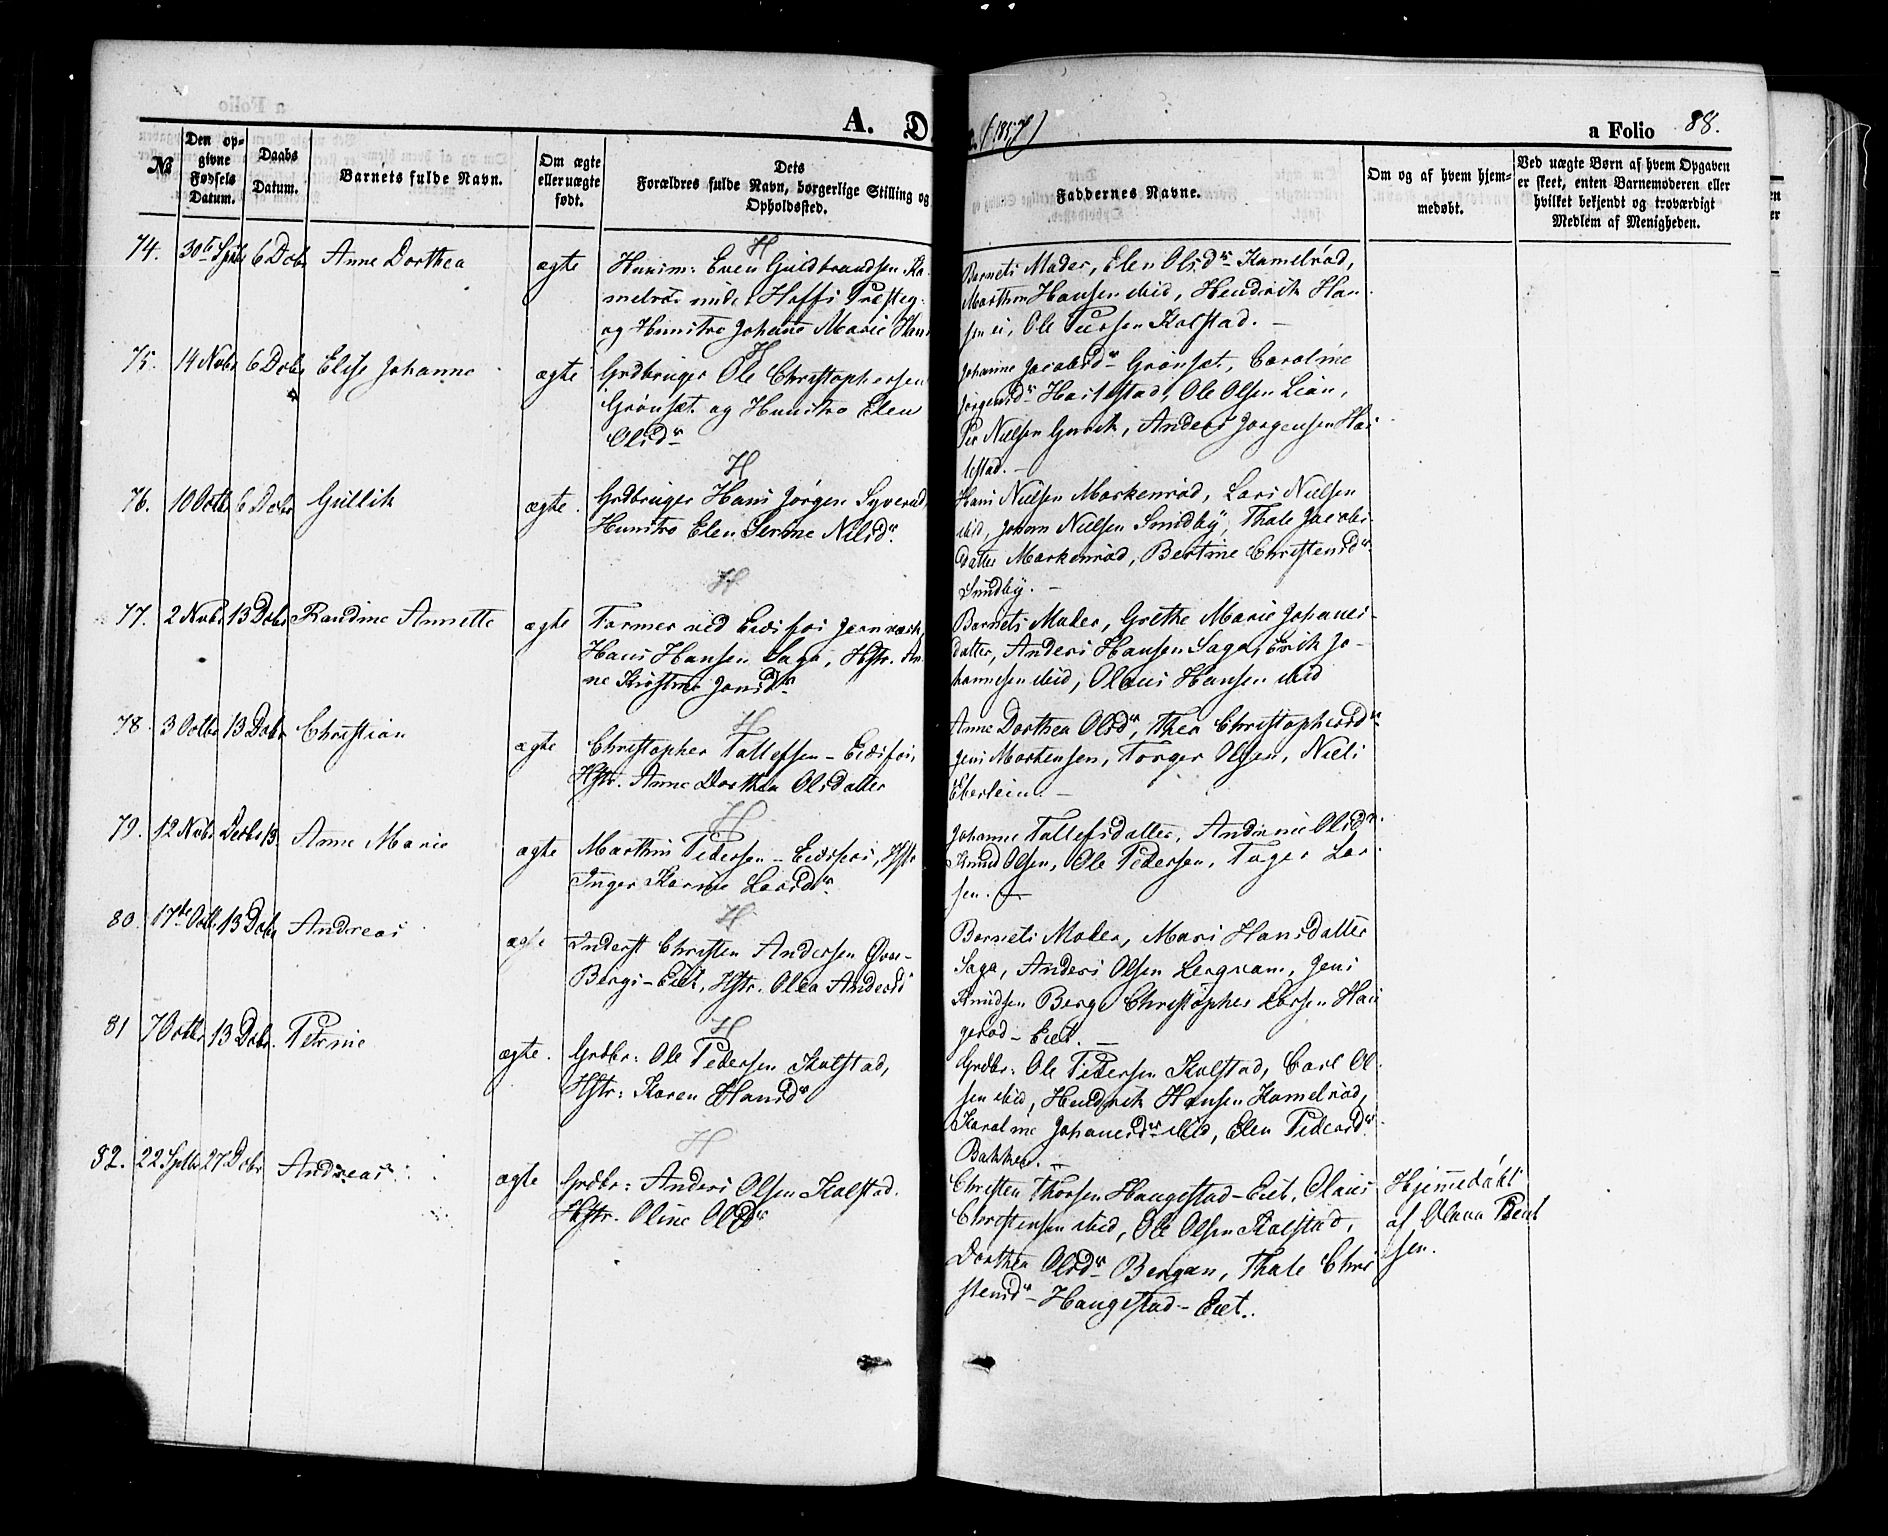 A. D
e. (1857)
a Folio 88.
№
Den op-
givne
Fødsels
Datum.
Daabs
Datum.
Barnets fulde Navn.
Om ægte
eller uægte
født.
Dets
Forældres fulde Navn, borgerlige Stilling og
Opholdssted.
Faddernes Navne.
Om og af hvem hjem-
medøbt.
Ved uægte Børn af hvem Opgaven
er skeet, enten Barnemoderen eller
hvilket bekjendt og troværdigt
Medlem af Menigheden.
74. 30te Sptbr 6 Dcbr Anne Dorthea ægte
H
Huusm: Even Guldbrandsen Ka-
melrød under Hoffs Præsteg.
og Hustro Johane Marie Hans
Barnets Moder, Elen Olsdr Kamelrød,
Marthin Hansen ibid, Hendrik Han-
sen ei, Ole Kolstad. –
75. 14 Nvbr 6 Dcbr Elise Johanne ægte
H
Grdbruger Ole Christophersen
Grønset og Hustro Elen
Olsdr
Johanne Jacobsdr Grønset, Caroline
Jørgensdr Hailestad, Ole Olsen Lian,
Per Nielsen, Anders Jørgensen Hai
lestad. –
76. 10 Octbr 6 Dcbr Gullik ægte.
H
Grdbruger Hans Jørgen Syverud,
Hustro Elen Serine Nilsdr
Hans Nielsen Markenrød, Lars Nielsen
ibid, Johan Nielsen Sundby, Thale Jacobs-
datter Markenrød, Bertine Christensdr
Sundby. –
77. 2 Nvbr 13 Dcbr Randine Annette ægte
H
Former ved Eidsfos Jernværk,
Hans Hansen Saga, Hstr. An-
ne Kirstine Jonsdr
Barnets Moder, Grethe Marie Johanes-
datter, Anders Hansen Saga, Erik Jo-
hannesen ibid, Olaus Hansen ibid
78. 3 Octbr 13 Dcbr Christian ægte
H
Christopher Tallefsen – Eidsfos,
Hstr. Anne Dorthea Olsdatter
Anne Dorthea Olsdr, Thea Christophersdr
Jens Mortensen, Torger Olsen, Niels
Eberlein. –
79. 12 Nvbr Decbr 13. Anne Marie ægte
H
Marthin Pedersen – Eidsfos, Hstr
Inger Karine Larsdr
Johanne Tallefsdatter, Andrine Olsdr
Knud Olsen, Ole Pedersen, Tager Lar-
sen. –
80. 17de Octb 13 Dcbr Andreas ægte
H
Inderst Christen Andersen Øvre-
Bergs-Eiet, Hstr. Olea Andersd
Barnets Moder, Mari Hansdatter
Saga, Anders Olsen Bergvam, Jens
Knudsen Berg, Christopher Larsen Hau
gerød – Eiet. –
81 7 Octbr 13 Dcbr. Petrine ægte.
H
Grdbr: Ole Pedersen Kolstad,
Hstr: Karen Hansdr
Grdbr: Ole Pedersen Kolstad, Carl Ol-
sen ibid, Hendrik Hansen Kamelrød,
Karoline Johanesdr ibid, Elen Pedersdr
Bakken. –
82. 22 Sptbr 27 Dcbr Andreas ægte
H
Grdbr: Anders Olsen Kolstad.
Hstr. Oline Olsdr
Christen Thorsen Haugestad-Eiet, Olaus
Christensen ibid, Ole Olsen Kolstad,
Dorthea Olsdr Bergan, Thale Chri
stensdr – Haugestad – Eiet.
Hjemmedøbt
af Olava Bent
sen.